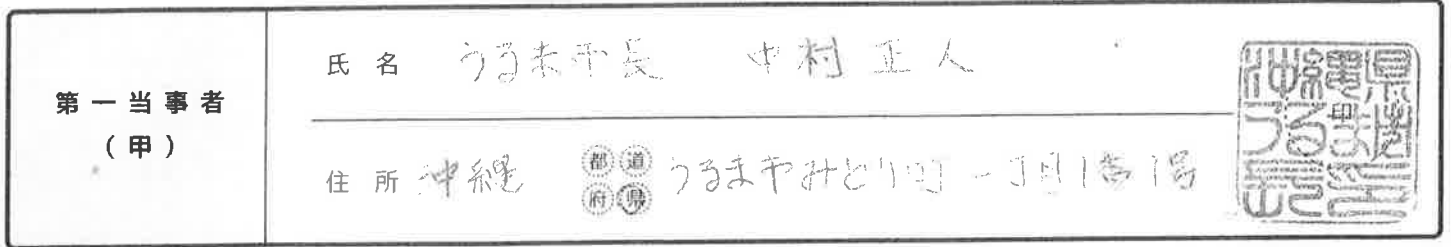 第一当事者
（甲）
氏名 うるま市長 中村 正人
住所 沖縄 都道府県 うるま市みどり町一丁目1番1号